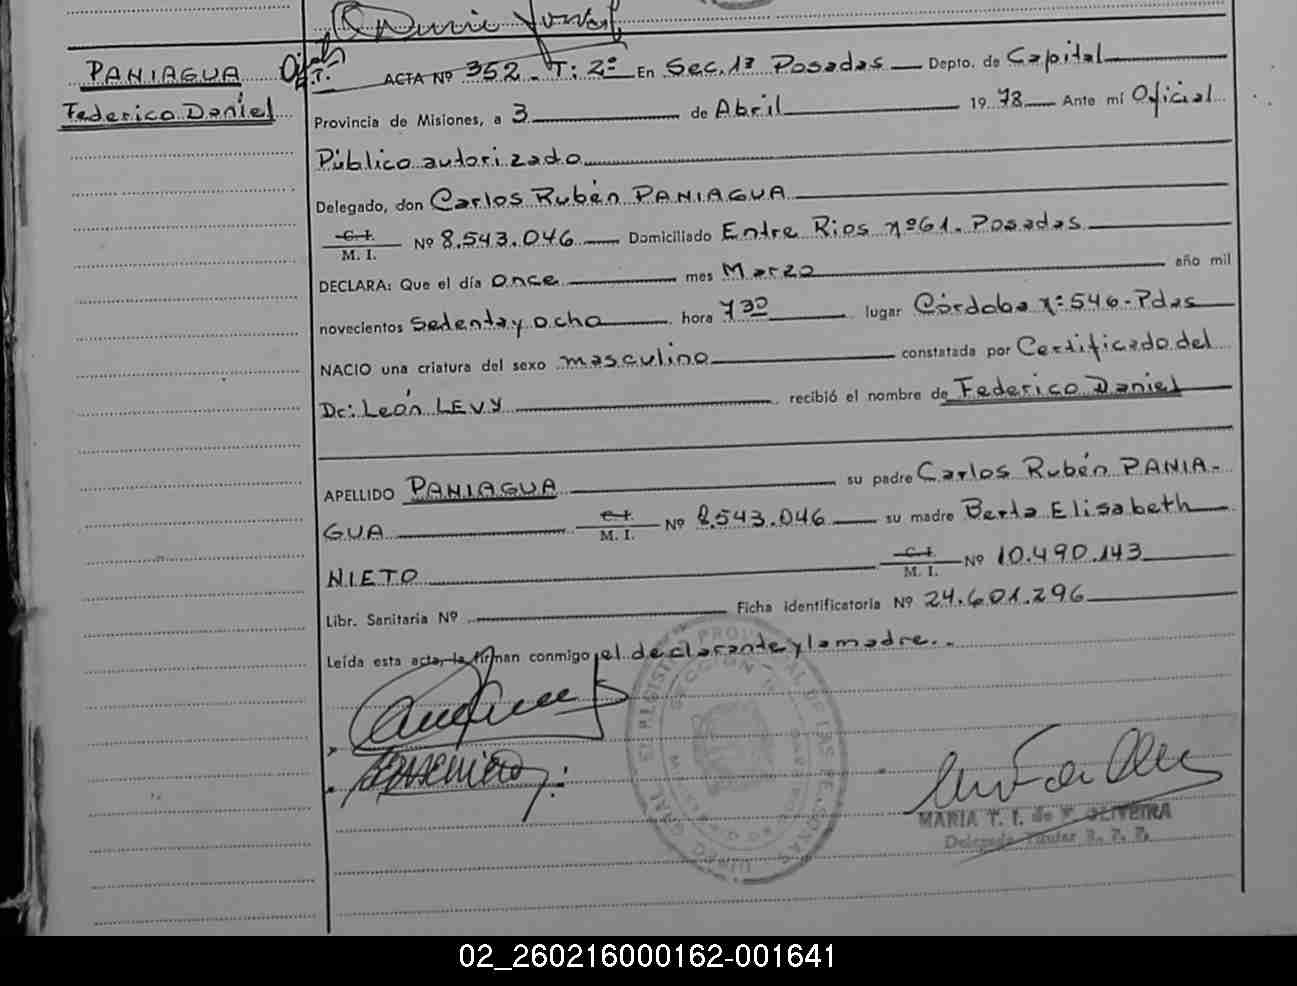 PANIAGUA
Federico Daniel
ACTA Nº 352 - T: 2º En Sec. 1ª Posadas Depto. de Capital
Provincia de Misiones, a 3 de Abril 1978 Ante mí Oficial
Público autorizado
Delegado, don Carlos Rubén PANIAGUA
C. I.
M. I. Nº 8.543.046 Domiciliado Entre Rios nº 61. Posadas
DECLARA: Que el día once mes Marzo año mil
novecientos Setenta y ocho hora 7 30 lugar Córdoba nº: 546 - Pdas
NACIO una criatura del sexo masculino constatada por Certificado del
Dr: León LEVY recibió el nombre de Federico Daniel
APELLIDO PANIAGUA su padre Carlos Rubén PANIA-
GUA C. I. M. I. Nº 8.543.046 su madre Berta Elisabeth
NIETO C. I. M. I. Nº 10.490.143
Libr. Sanitaria Nº Ficha identificatoria Nº 24.601.296
Leída esta acta, la firman conmigo, el declarante y la madre..
MARIA T. I. de F. OLIVEIRA
Delegado Titular R. P. P.
02_260216000162-001641